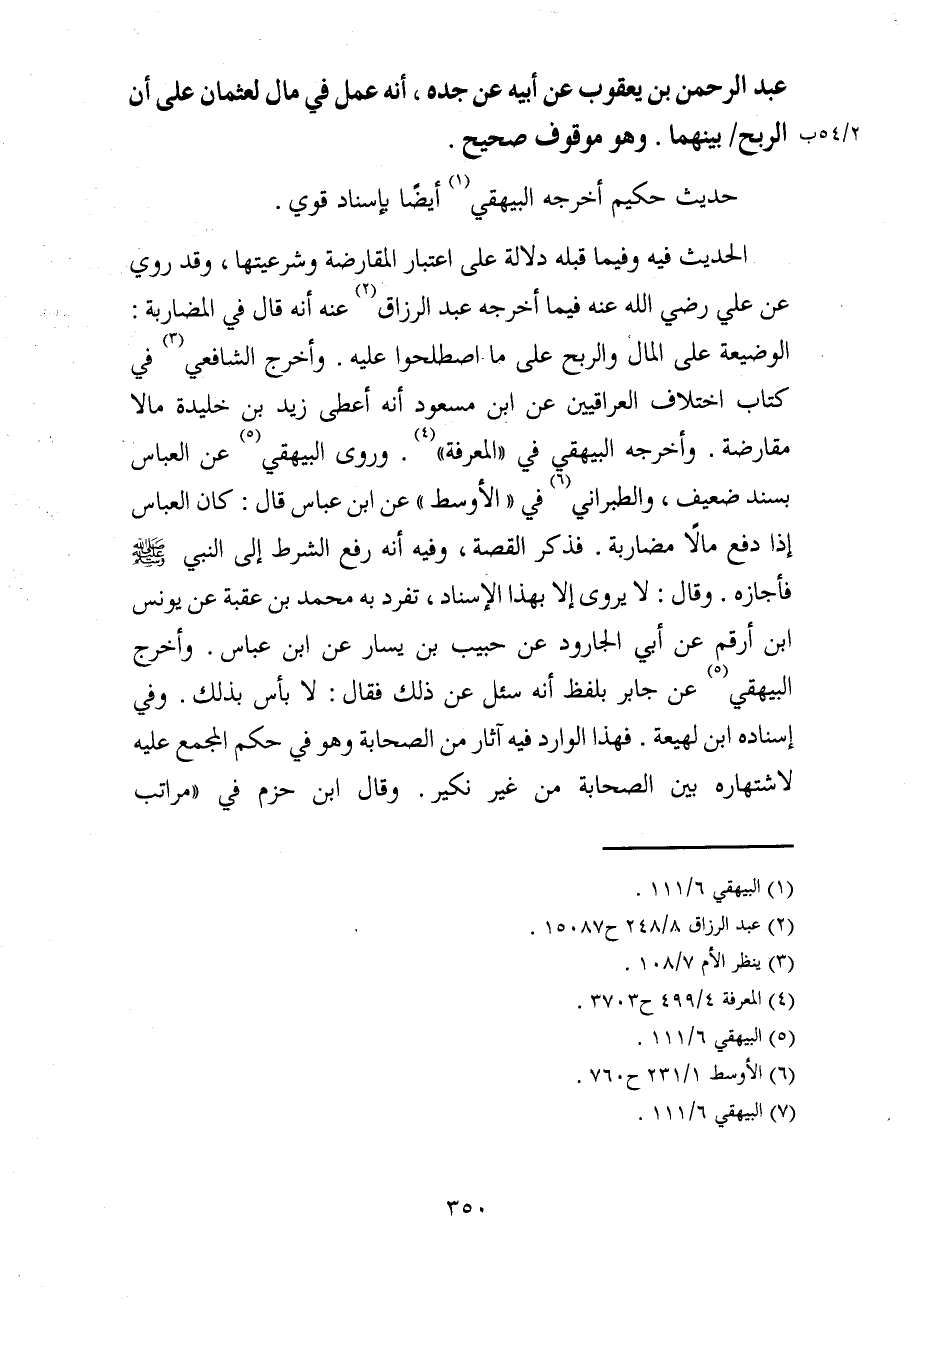 عبد الرحمن بن يعقوب عن أبيه عن جده ، أنه عمل في مال لعثمان على أن
٥٤/٢ب الربح/ بينهما . وهو موقوف صحيح .
حديث حكيم أخرجه البيهقي(١) أيضًا بإسناد قوي .
الحديث فيه وفيما قبله دلالة على اعتبار المقارضة وشرعيتها ، وقد روي
عن علي رضي الله عنه فيما أخرجه عبد الرزاق(٢) عنه أنه قال في المضاربة :
الوضيعة على المال والربح على ما اصطلحوا عليه . وأخرج الشافعي(٣) في
كتاب اختلاف العراقيين عن ابن مسعود أنه أعطى زيد بن خليدة مالا
مقارضة . وأخرجه البيهقي في «المعرفة»(٤) . وروى البيهقي(٥) عن العباس
بسند ضعيف ، والطبراني(٦) في « الأوسط » عن ابن عباس قال : كان العباس
إذا دفع مالًا مضاربة . فذكر القصة ، وفيه أنه رفع الشرط إلى النبي ﷺ
فأجازه . وقال : لا يروى إلا بهذا الإسناد ، تفرد به محمد بن عقبة عن يونس
ابن أرقم عن أبي الجارود عن حبيب بن يسار عن ابن عباس . وأخرج
البيهقي(٥) عن جابر بلفظ أنه سئل عن ذلك فقال : لا بأس بذلك . وفي
إسناده ابن لهيعة . فهذا الوارد فيه آثار من الصحابة وهو في حكم المجمع عليه
لاشتهاره بين الصحابة من غير نكير . وقال ابن حزم في «مراتب
(١) البيهقي ١١١/٦ .
(٢) عبد الرزاق ٢٤٨/٨ ح١٥٠٨٧ .
(٣) ينظر الأم ١٠٨/٧ .
(٤) المعرفة ٤٩٩/٤ ح٣٧٠٣ .
(٥) البيهقي ١١١/٦ .
(٦) الأوسط ٢٣١/١ ح٧٦٠ .
(٧) البيهقي ١١١/٦ .
٣٥٠